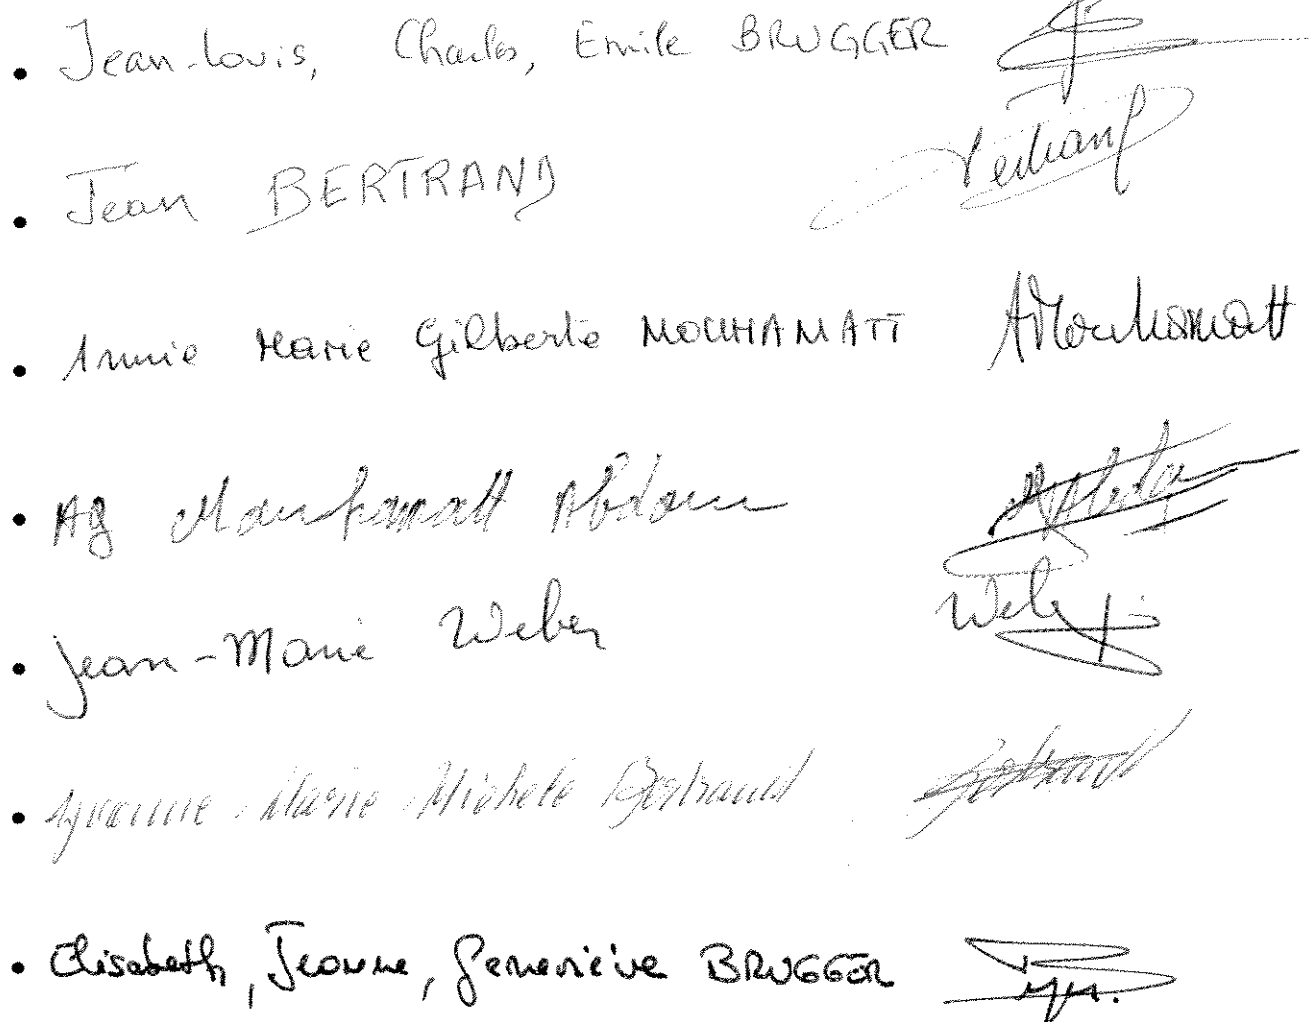 • Jean-Louis, Charles, Emile BRUGGER
• Jean BERTRAND Bertrand
• Annie Marie Gilberte MOUHAMATT AMouhamatt
• AG Mouhamatt Abdou
• Jean-Marie Weber Weber
• Yvonne Marie Michele Bertrand Bertrand
• Elisabeth, Jeanne, Geneviève BRUGGER